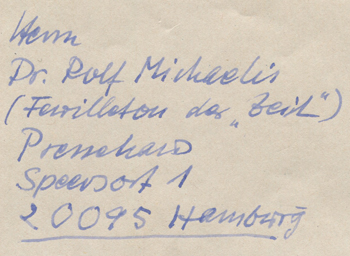 Herrn
Dr. Rolf Michaelis
(Feuilleton der „Zeit“)
Pressehaus
Speersort 1
20095 Hamburg